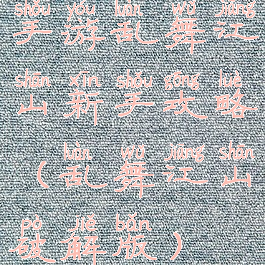 shǒu yóu luàn wǔ jiāng
手游乱舞江
shān xīn shǒu gōng lüè
山新手攻略
luàn wǔ jiāng shān
(乱舞江山
pò jiě bǎn
破解版)